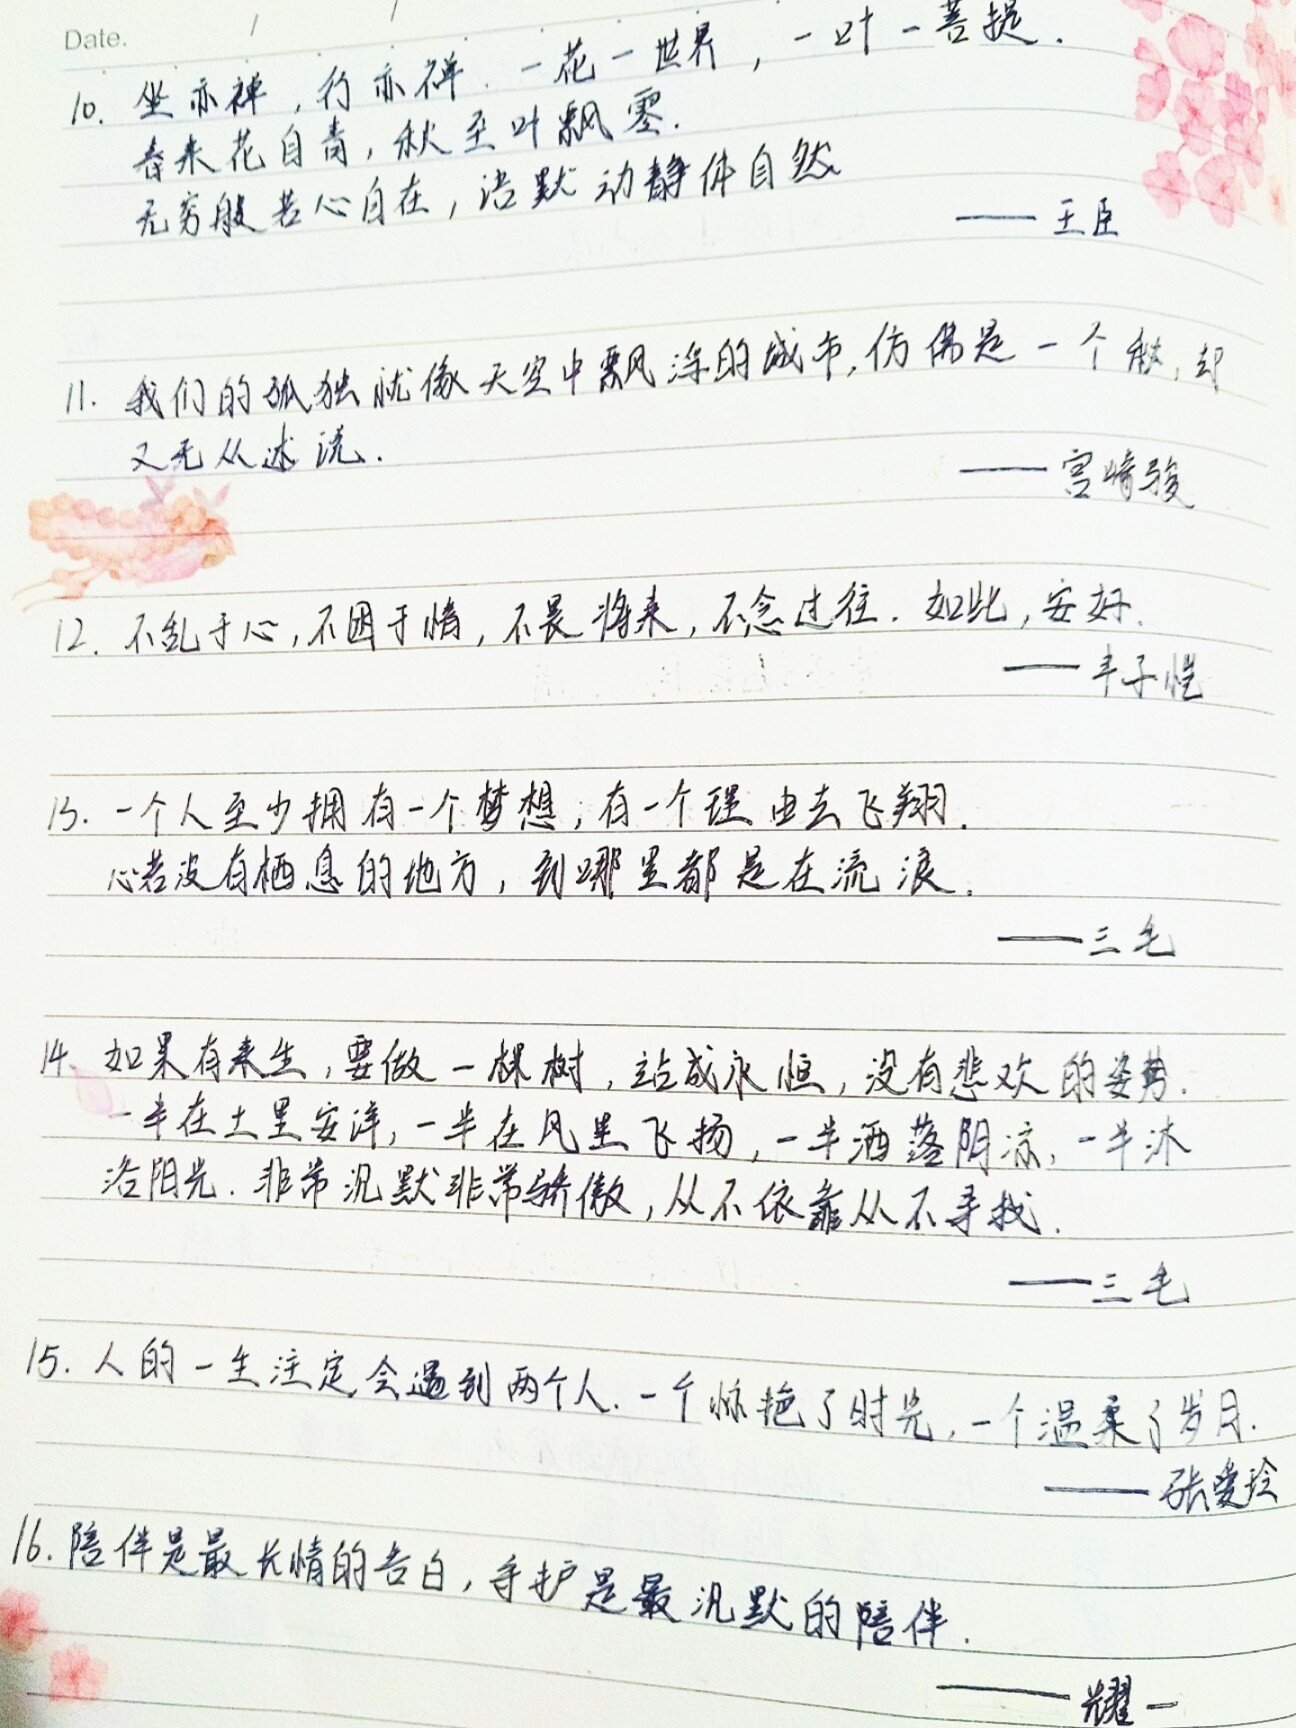 Date. / /
10. 坐亦禅，行亦禅.一花一世界，一叶一菩提.
春来花自青，秋至叶飘零.
无穷般若心自在，语默动静体自然
——王臣
11. 我们的孤独就像天空中飘浮的城市,仿佛是一个秘,却
又无从述说.
——宫崎骏
12. 不乱于心,不困于情,不畏将来,不念过往.如此,安好.
——丰子恺
13. 一个人至少拥有一个梦想,有一个理由去飞翔.
心若没有栖息的地方,到哪里都是在流浪.
——三毛
14. 如果有来生,要做一棵树,站成永恒,没有悲欢的姿势.
一半在土里安洋,一半在风里飞扬,一半洒落阴凉,一半沐
浴阳光.非常沉默非常骄傲,从不依靠从不寻找.
——三毛
15. 人的一生注定会遇到两个人.一个惊艳了时光,一个温柔了岁月.
——张爱玲
16. 陪伴是最长情的告白,守护是最沉默的陪伴.
——耀一